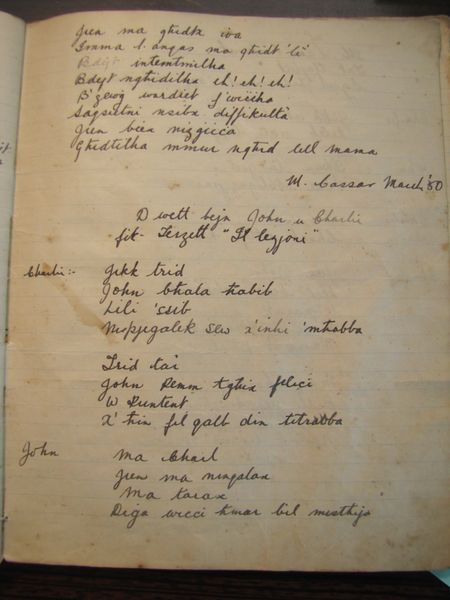 Jien ma ghidtx iva
Imma l-anqas ma ghidt 'le'
Bdejt intemtmilha
Bdejt nghidilha eh! eh! eh!
B'zewg wardiet f'wiccha
Saqsietni nsibx diffikultà
Jien bca niggicca
Ghidtilha mmur nghid lill mama
M. Cassar March '50
Dwett bejn John u Charlie
fit- Terzett "Il legjoni"
Charlie:- Jekk trid
John tkhala habib
Lili 'csib
Nispjegalek sew x'inhi 'mhabba
Trid taf
John Kemm tghix felici
U Kuntent
X'hin fil qalb din titrabba
John Ma Charl
Jien ma ningalax
Ma tarax
Diga wicci hmar bil misthija